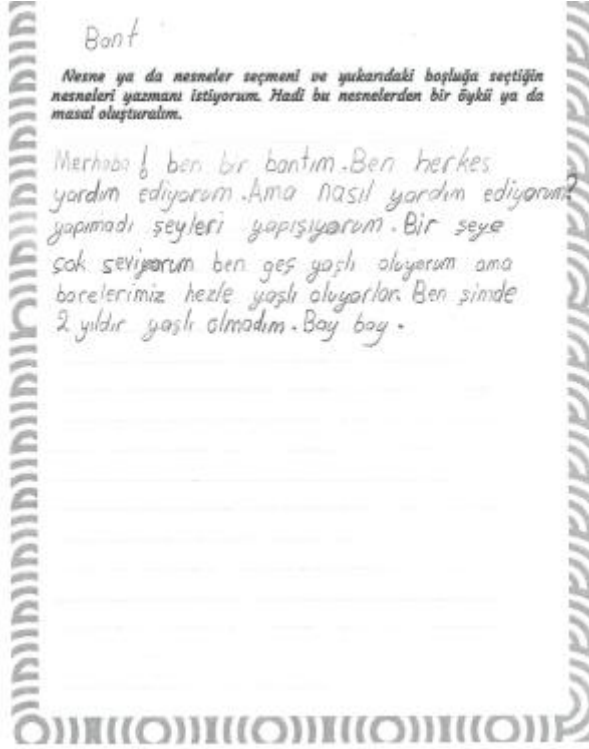 Bant
Nesne ya da nesneler seçmeni ve yukarıdaki boşluğa seçtiğin
nesneleri yazmanı istiyorum. Hadi bu nesnelerden bir öykü ya da
masal oluşturalım.
Merhaba! ben bir bantım. Ben herkes
yardım ediyorum. Ama nasıl yardım ediyorum?
yapımadı şeyleri yapışıyorum. Bir şeye
çok seviyorum ben geş yaşlı oluyorum ama
barelerimiz hezle yaşlı oluyorlar. Ben şimde
2 yıldır yaşlı olmadım. Bay bay.